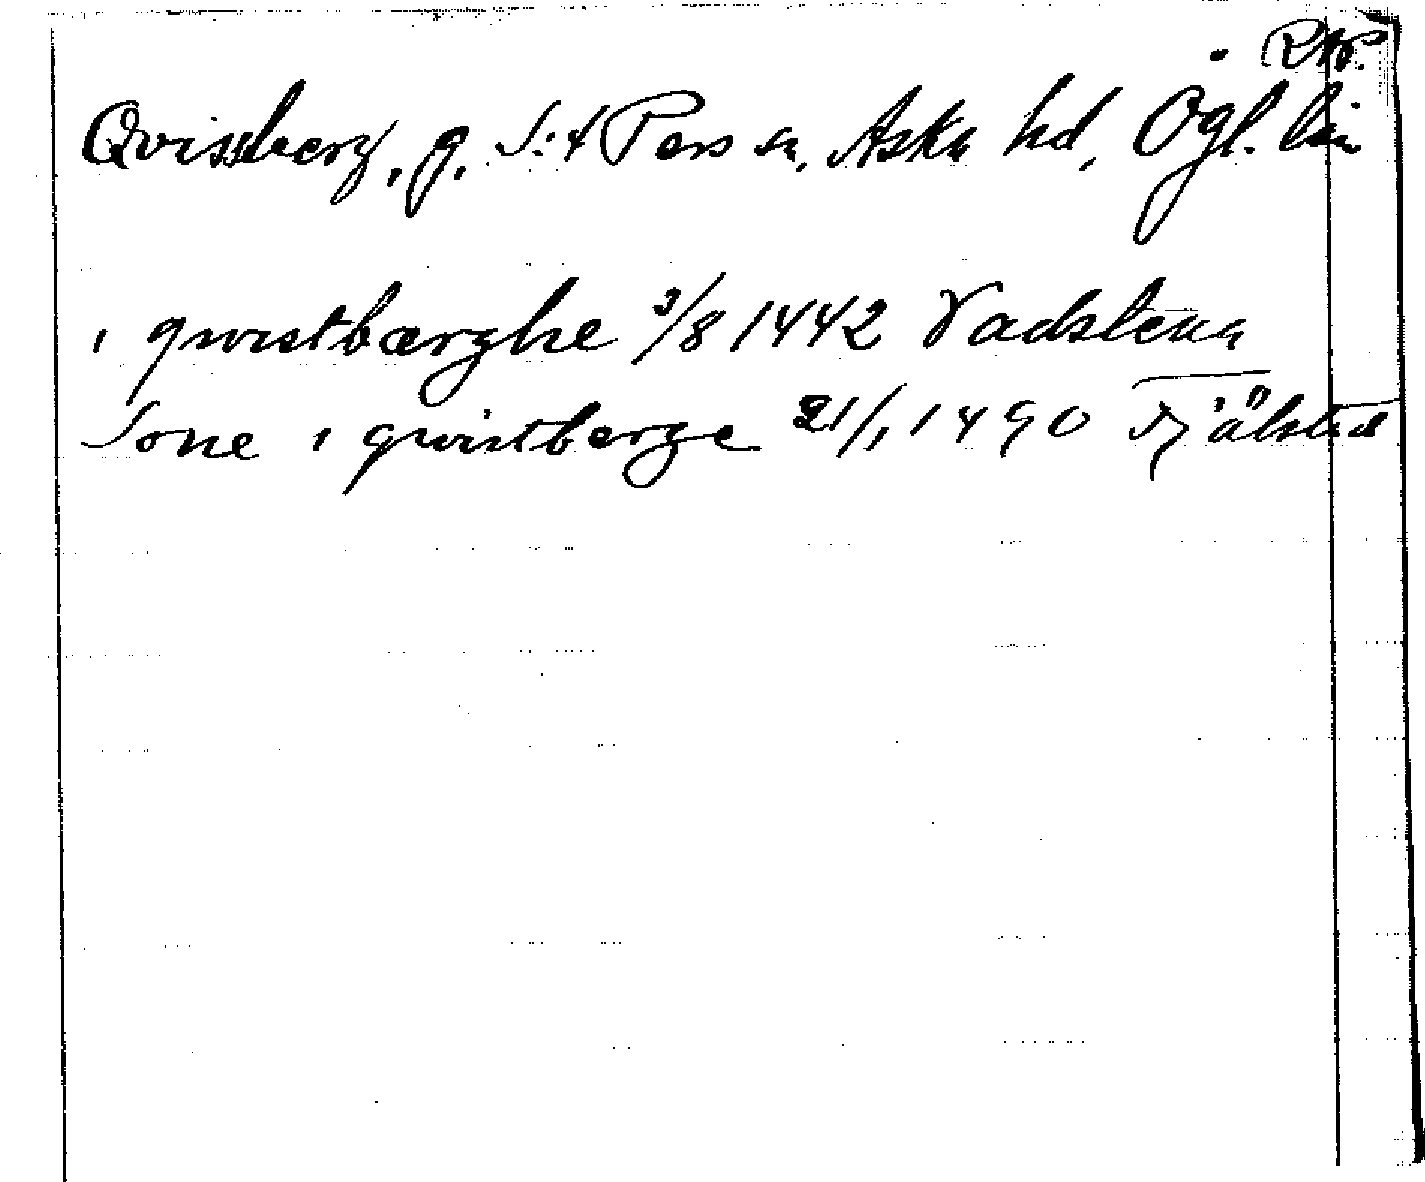 Qvissberg, g. S:t Pers sn, Aska hd, Ögl. län
i qwistbærghe 3/8 1442 Vadstena
Jone i qwistberge 21/1 1490 Fjälstad